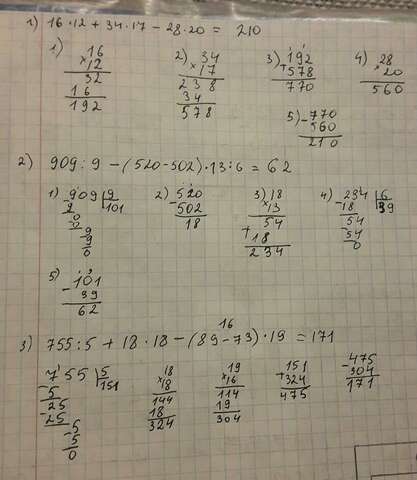 1) 16·12+34·17-28·20= 210
1) 16 2) 34 3) 192 4) 28
×12 ×17 +578 ×20
32 238 770 560
16 34
192 578
5) -770
560
210
2) 909:9-(520-502)·13:6=62
1) -909 9 2) -520 3) 18 4) -234 6
9 101 502 ×13 18 39
0 18 54 54
0 + 18 -54
9 234 0
9
0
5) -101
39
62
16
3) 755:5+18·18-(89-73)·19=171
755 5 18 19 151 -475
-5 151 ×18 ×16 +324 304
25 144 114 475 171
-25 18 19
-5 324 304
5
0